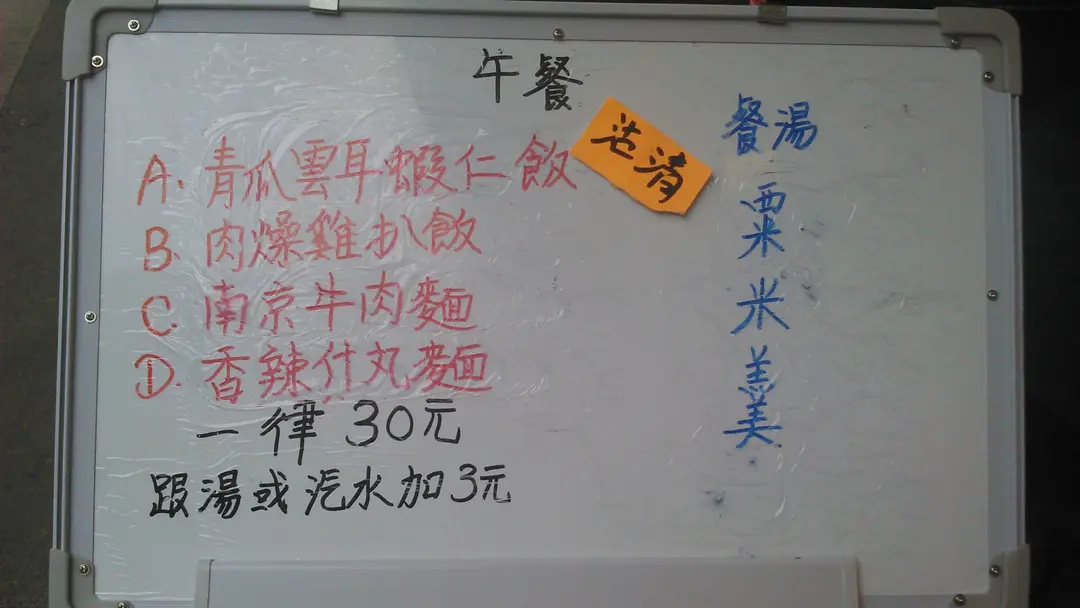 午餐
A. 青瓜雲耳蝦仁飯
沽清
B. 肉燥雞扒飯
C. 南京牛肉麵
D. 香辣什丸麵
一律 30元
跟湯或汽水加3元
餐湯
粟
米
羹